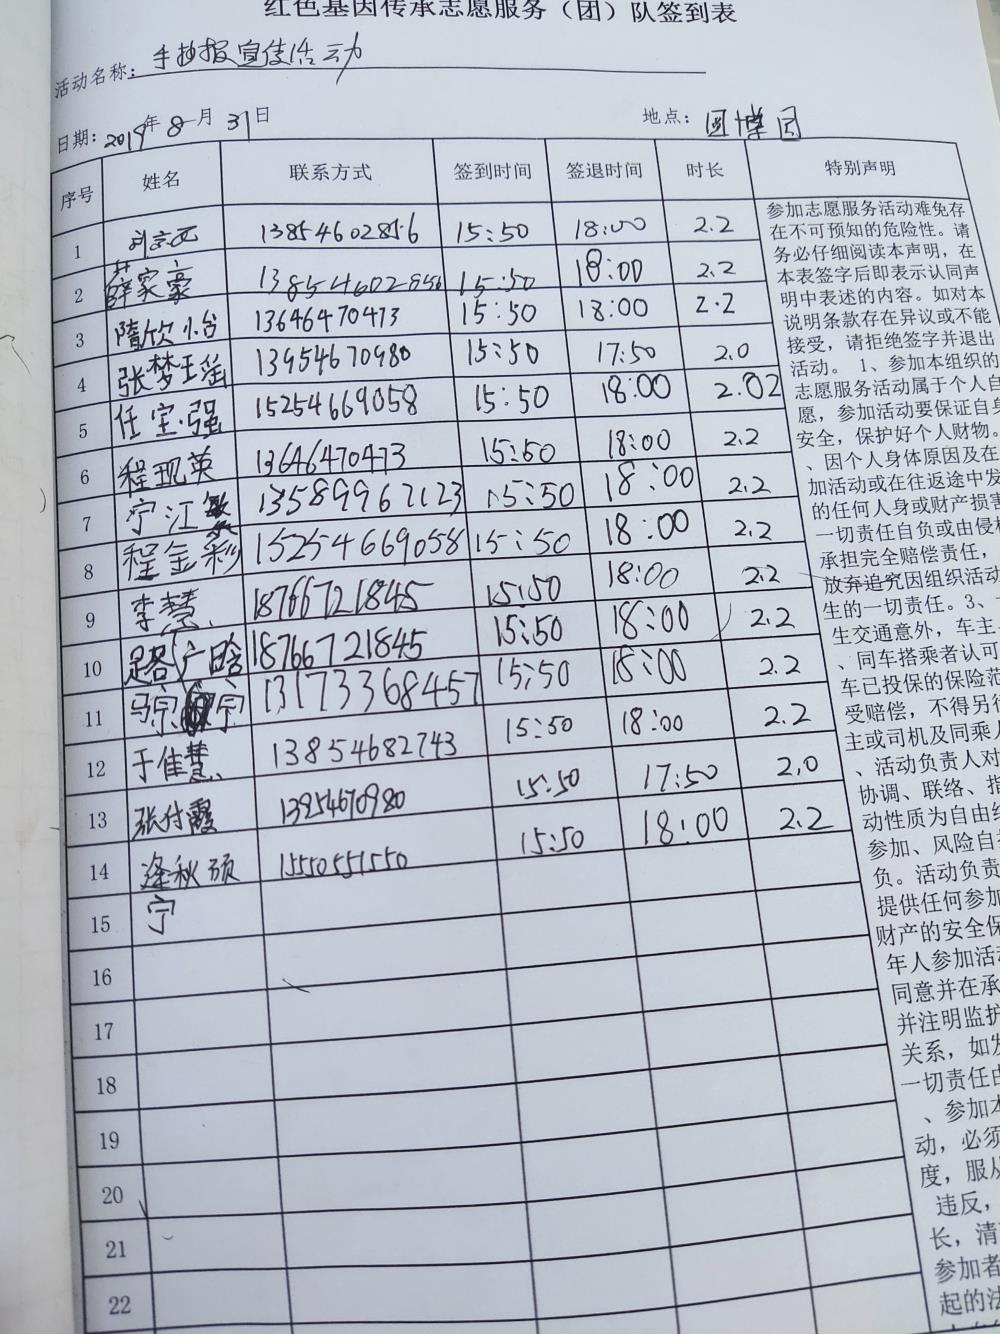 红色基因传承志愿服务（团）队签到表
活动名称：手抄报宣传活动
日期：2019年8月31日 地点：园博园
序号 姓名 联系方式 签到时间 签退时间 时长 特别声明
1 刘京西 13854602856 15:50 18:00 2.2
2 薛家豪 13854602856 15:50 18:00 2.2
3 隋欣怡 13646470473 15:50 18:00 2.2
4 张梦瑶 13954670980 15:50 17:50 2.0
5 任宝强 15254669058 15:50 18:00 2.02
6 程现英 13646470473 15:50 18:00 2.2
7 宁江 13589967123 15:50 18:00 2.2
8 程金彩 15254669058 15:50 18:00 2.2
9 李慧 18766721845 15:50 18:00 2.2
10 18766721845 15:50 18:00 2.2
11 马宁宁 13173368457 15:50 18:00 2.2
12 于佳慧 13854682743 15:50 18:00 2.2
13 张付霞 13954670980 15:50 17:50 2.0
14 逄秋硕 15550551550 15:50 18:00 2.2
15 宁
16
17
18
19
20
21
22
参加志愿服务活动难免存
在不可预知的危险性。请
务必仔细阅读本声明，在
本表签字后即表示认同声
明中表述的内容。如对本
说明条款存在异议或不能
接受，请拒绝签字并退出
活动。 1、参加本组织的
志愿服务活动属于个人自
愿，参加活动要保证自身
安全，保护好个人财物。
、因个人身体原因及在
加活动或在往返途中发
的任何人身或财产损害
一切责任自负或由侵权
承担完全赔偿责任，
放弃追究因组织活动
生的一切责任。3、
生交通意外，车主
、同车搭乘者认可
车已投保的保险范
受赔偿，不得另行
主或司机及同乘人
、活动负责人对
协调、联络、指
动性质为自由组
参加、风险自担
负。活动负责
提供任何参加
财产的安全保
年人参加活动
同意并在承
并注明监护
关系，如发
一切责任由
、参加本
动，必须
度，服从
违反，
长，清
参加者
起的法